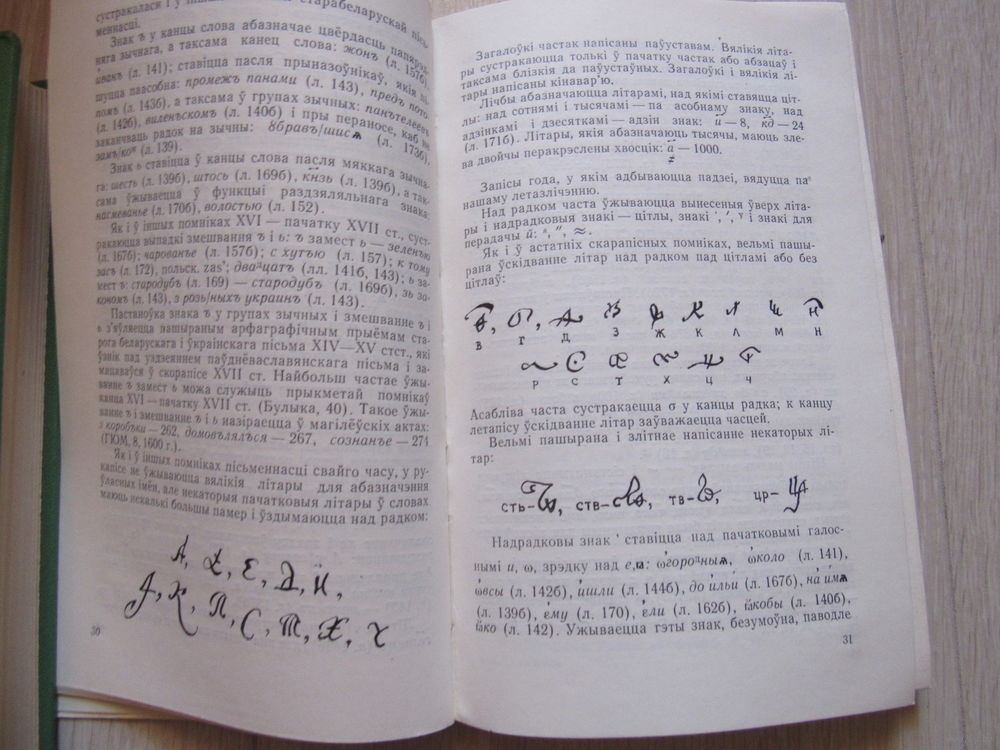 сустракалася і ў старабеларускай пісь-
меннасці.
Знак ъ у канцы слова абазначае цвёрдасць папярэд-
няга зычнага, а таксама канец слова: жонъ (л. 157б),
иванъ (л. 141); ставіцца пасля прыназоўнікаў, якія пі-
шуцца паасобна: промежъ панами (л. 143), предъ
(л. 142б), виленъскомъ (л. 140б) і пры пераносе, каб не
ломъ (л. 143б), а таксама ў групах зычных: панътелеевъ
заканчваць радок на зычны: 8бравъ/шисѧ (л. 173б),
замъ/ком (л. 139).
Знак ь ставіцца ў канцы слова пасля мяккага зычна-
га: шесть (л. 139б), штось (л. 169б), кнзь (л. 139б), а так-
сама ўжываецца ў функцыі раздзяляльнага знака:
насмеванье (л. 170б), волостью (л. 152).
Як і ў іншых помніках XVI — пачатку XVII ст., суст-
ракаюцца выпадкі змешвання ъ і ь: ъ замест ь — зеленью
(л. 167б), чарованъе (л. 157б); с хутъю (л. 157); к тому
засъ (л. 172), польск. zas'; двадцатъ (лл. 141б, 143); ь за-
мест ъ: стародубь (л. 169) — стародубъ (л. 169б), зь за-
кономъ (л. 143), з розь/ных украин (л. 143).
Пастаноўка знака ъ у групах зычных і змешванне ъ і
ь з'яўляецца пашыраным арфаграфічным прыёмам ста-
рога беларускага і ўкраінскага пісьма XIV—XV стст., які
ўзнік пад уздзеяннем паўднёваславянскага пісьма і за-
мацаваўся ў скорапісе XVII ст. Найбольш частае ўжы-
ванне ъ замест ь можа служыць прыкметай помнікаў
канца XVI — пачатку XVII ст. (Булыка, 40). Такое ўжы-
ванне ъ і змешванне ъ і ь назіраецца ў магілёўскіх актах:
з коробъки — 262, домовълялъся — 267, сознанъе — 271
(ГЮМ, 8, 1600 г.).
Як і ў іншых помніках пісьменнасці свайго часу, у ру-
капісе не ўжываюцца вялікія літары для абазначэння
ўласных імён, але некаторыя пачатковыя літары ў словах
маюць некалькі большы памер і ўздымаюцца над радком:
А, Е, Д, Н,
К, П, С, Т, Х, Ч
30
Загалоўкі частак напісаны паўуставам. Вялікія літа-
ры сустракаюцца толькі ў пачатку частак або абзацаў і
таксама блізкія да паўустаўных. Загалоўкі і вялікія лі-
тары напісаны кінавар'ю.
Лічбы абазначаюцца літарамі, над якімі ставяцца ціт-
лы: над сотнямі і тысячамі — па асобнаму знаку, над
адзінкамі і дзесяткамі — адзін знак: и — 8, кд — 24
(л. 171б). Літары, якія абазначаюць тысячы, маюць зле-
ва двойчы перакрэслены хвосцік: а — 1000.
Запісы года, у якім адбываюцца падзеі, вядуцца па
нашаму летазлічэнню.
Над радком часта ўжываюцца вынесеныя ўверх літа-
ры і надрадковыя знакі — цітлы, знакі ', ʹ, ᵛ і знакі для
перадачы й: ʺ, ≈.
Як і ў астатніх скарапісных помніках, вельмі пашы-
рана ўскідванне літар над радком пад цітламі або без
цітлаў:
в г д з ж к л м н
р с т х ц ч
Асабліва часта сустракаецца σ у канцы радка; к канцу
летапісу ўскідванне літар заўважаецца часцей.
Вельмі пашырана і злітнае напісанне некаторых лі-
тар:
сть–, ств–, тв–, цр–
Надрадковы знак ' ставіцца над пачатковымі галос-
нымі и, ω, зрэдку над е, ꙗ: ѡгородныѧ, ѡколо (л. 141),
ѡвсы (л. 142б), ишли (л. 144б), до ильи (л. 167б), на имѧ
(л. 139б), ему (л. 170), ели (л. 162б), ꙗкобы (л. 140б),
ꙗко (л. 142). Ужываецца гэты знак, безумоўна, паводле
31